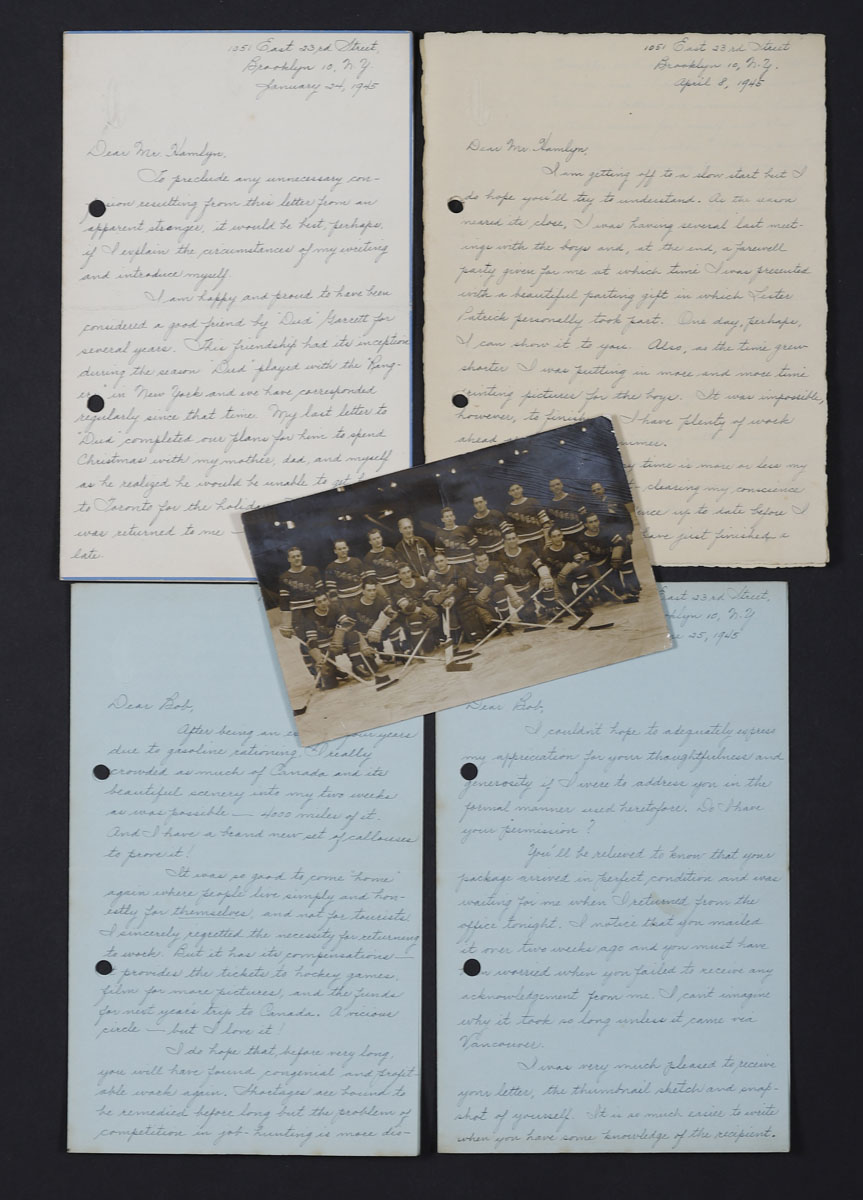 1051 East 23rd Street,
Brooklyn 10, N.Y.
January 24, 1945
Dear Mr. Hamlyn,
To preclude any unnecessary con-
sion resulting from this letter from an
apparent stranger, it would be best, perhaps,
if I explain the circumstances of my writing
and introduce myself.
I am happy and proud to have been
considered a good friend by "Dud" Garrett for
several years. This friendship had its inception
durring the season "Dud" played with the "Rang-
ers" in New York and we have corresponded
regularly since that time. My last letter to
"Dud" completed our plans for him to spend
Christmas with my mother, dad, and myself
as he realized he would be unable to get
to Toronto for the holiday
was returned to me —
late.
1051 East 23rd Street
Brooklyn 10, N.Y.
April 8, 1945
Dear Mr. Hamlyn,
I am getting off to a slow start but I
do hope you'll try to understand. As the season
neared its close, I was having several last meet-
ings with the boys and, at the end, a farewell
party given for me at which time I was presented
with a beautiful parting gift in which Lester
Patrick personally took part. One day, perhaps,
I can show it to you. Also, as the time grew
shorter I was putting in more and more time
printing pictures for the boys. It was impossible,
however, to finish I have plenty of work
ahead
time is more or less my
clearing my conscience
up to date before I
have just finished a
Dear Bob,
After being an years
due to gasoline rationing, I really
crowded as much of Canada and its
beautiful scenery into my two weeks
as was possible — 4000 miles of it.
And I have a brand new set of callouses
to prove it!
It was so good to come "home"
again where people live simply and hon-
estly for themselves, and not for tourists.
I sincerely regretted the necessity for returning
to work. But it has its compensations —
it provides the tickets to hockey games,
film for more pictures, and the funds
for next year's trip to Canada. A vicious
circle — but I love it!
I do hope that, before very long,
you will have found congenial and profit-
able work again. Shortages are bound to
be remedied before long but the problem of
competition in job-hunting is more dis-
East 23rd Street,
Brooklyn 10, N.Y.
25, 1945
Dear Bob,
I couldn't hope to adequately express
my appreciation for your thoughtfulness and
generosity if I were to address you in the
formal manner used heretofore. Do I have
your "permission"?
You'll be relieved to know that your
package arrived in perfect condition and was
waiting for me when I returned from the
office tonight. I notice that you mailed
it over two weeks ago and you must have
worried when you failed to receive any
acknowledgement from me. I can't imagine
why it took so long unless it came via
Vancouver.
I was very much pleased to receive
your letter, the thumbnail sketch and snap-
shot of yourself. It is so much easier to write
when you have some knowledge of the recipient.